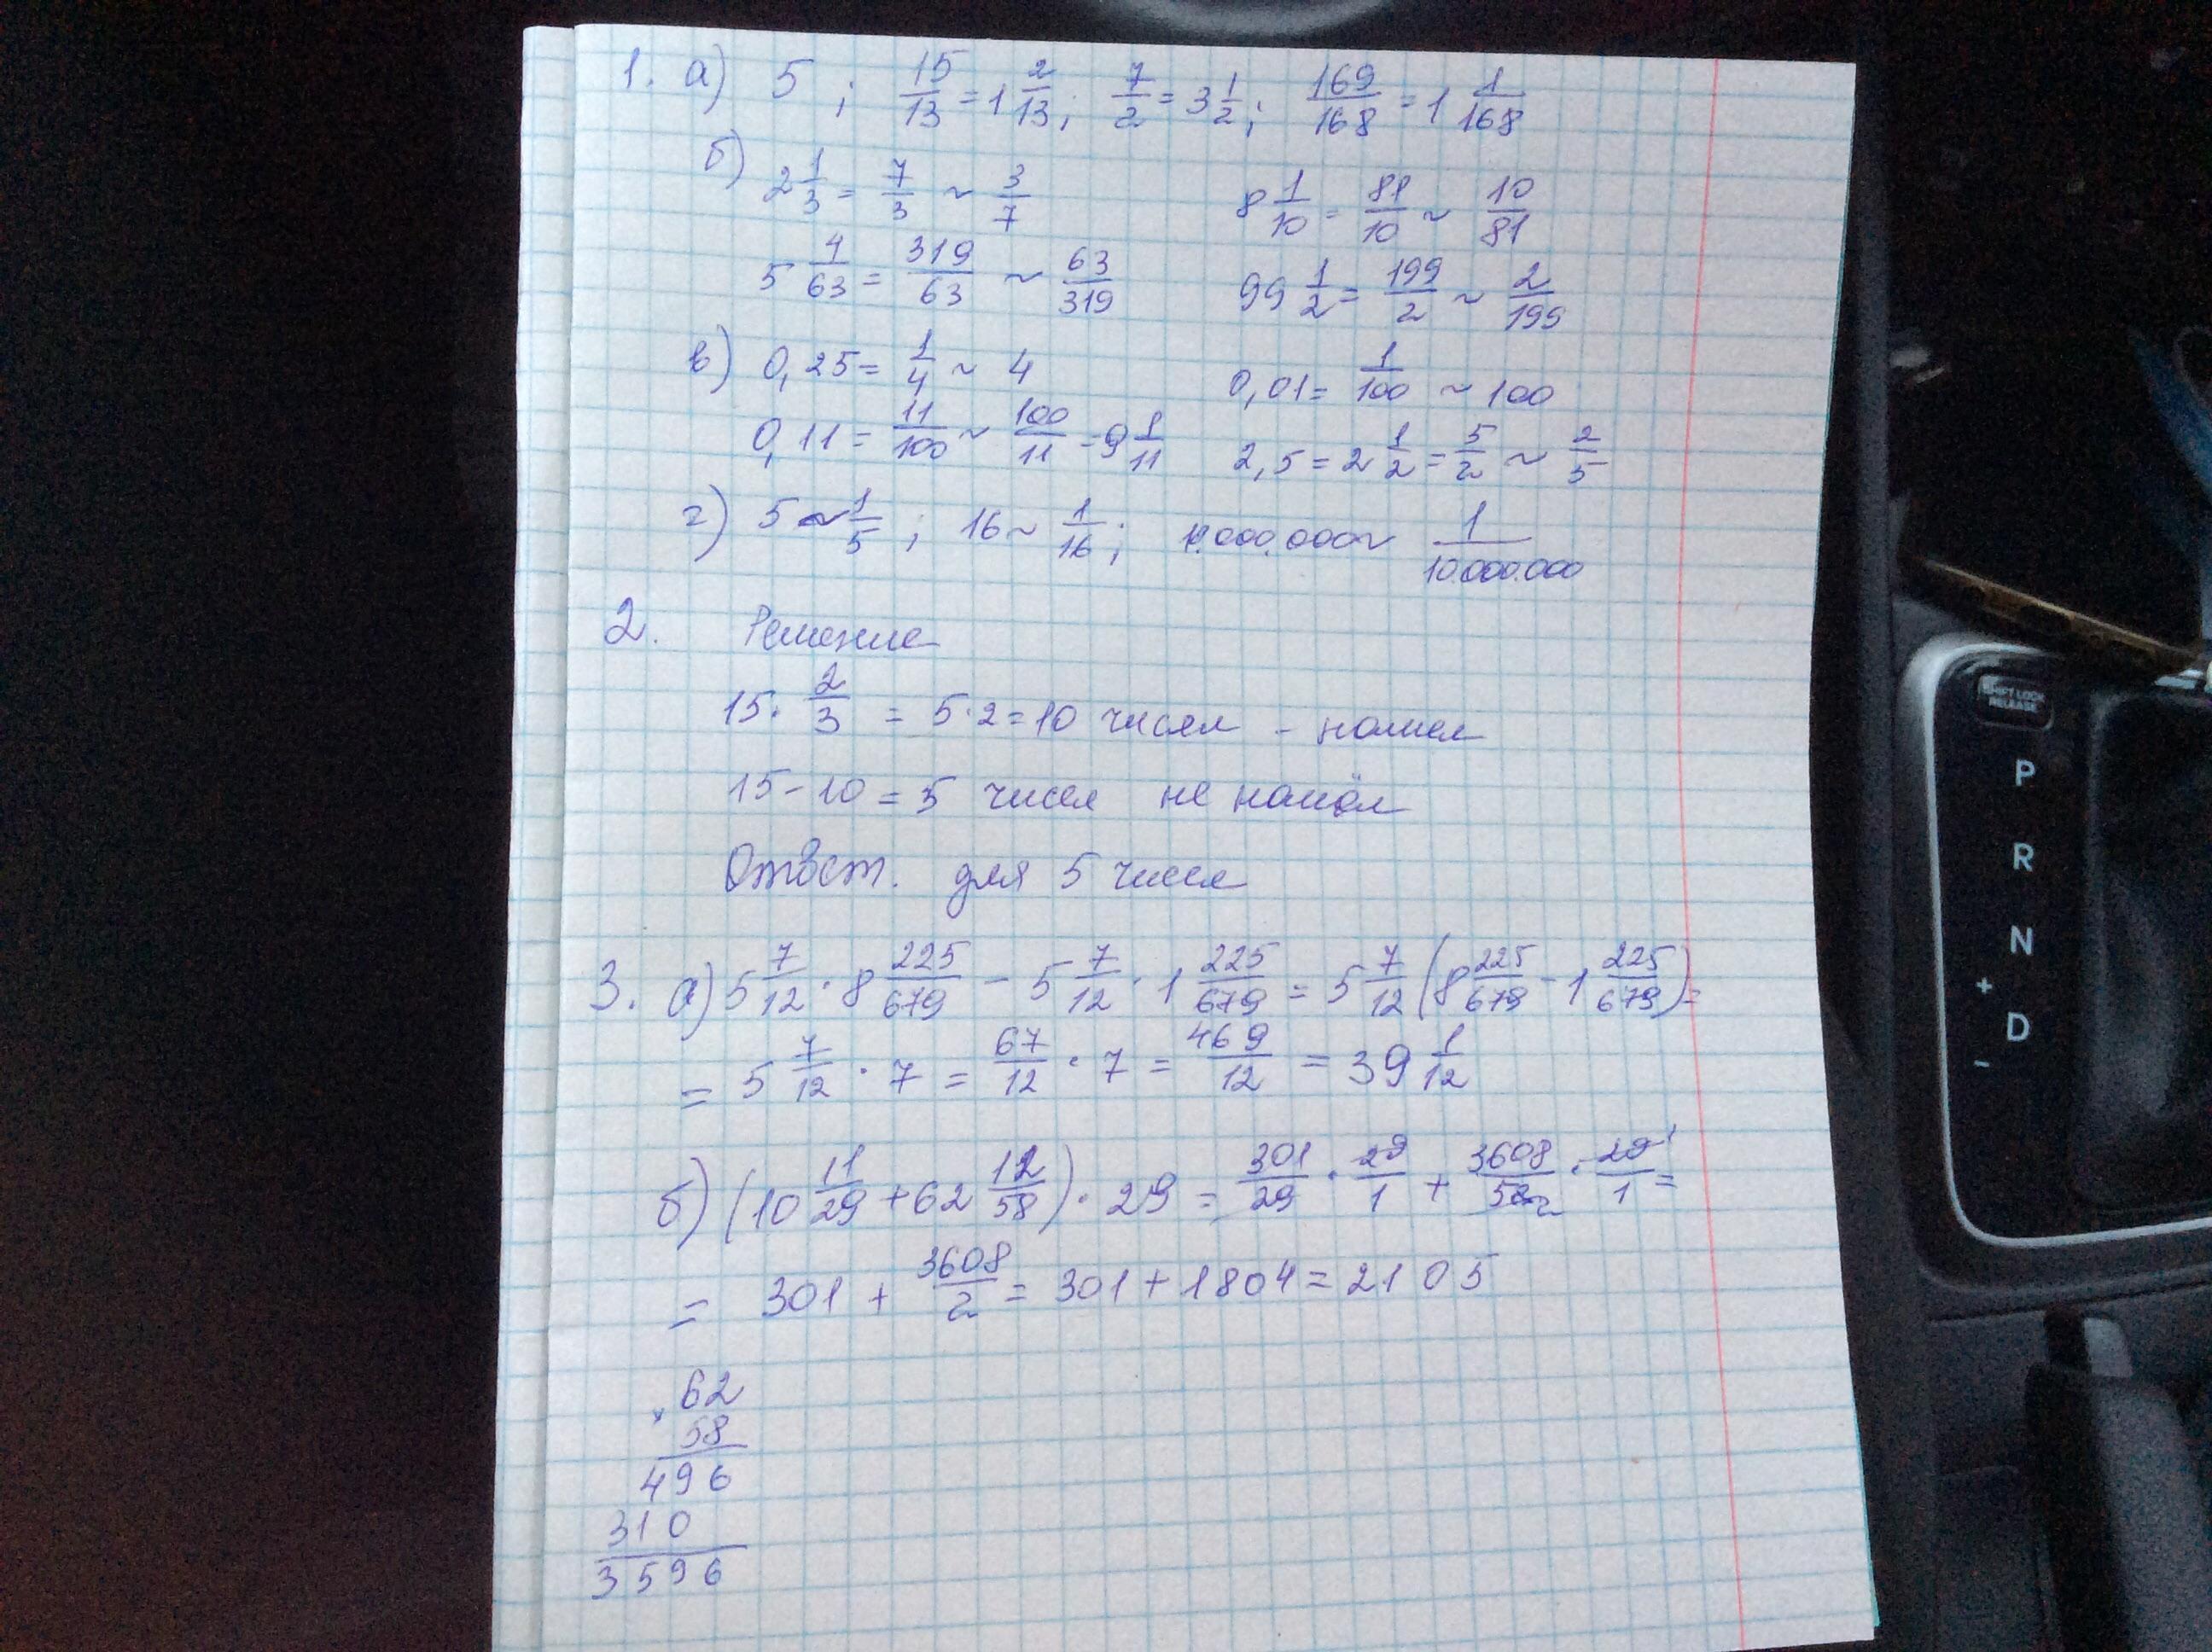 1. а) 5 ; 15/13 = 1 2/13 ; 7/2 = 3 1/2 ; 169/168 = 1 1/168
б) 2 1/3 = 7/3 ~ 3/7 8 1/10 = 81/10 ~ 10/81
5 4/63 = 319/63 ~ 63/319 99 1/2 = 199/2 ~ 2/199
в) 0,25 = 1/4 ~ 4 0,01 = 1/100 ~ 100
0,11 = 11/100 ~ 100/11 = 9 1/11 2,5 = 2 1/2 = 5/2 ~ 2/5
г) 5 ~ 1/5 ; 16 ~ 1/16 ; 10.000.000 ~ 1/10.000.000
2. Решение
15 · 2/3 = 5 · 2 = 10 чисел - нашел
15 - 10 = 5 чисел не нашёл
Ответ. для 5 чисел
3. а) 5 7/12 · 8 225/679 - 5 7/12 · 1 225/679 = 5 7/12 (8 225/679 - 1 225/679) =
= 5 7/12 · 7 = 67/12 · 7 = 469/12 = 39 1/12
б) (10 11/29 + 62 12/58) · 29 = 301/29 · 29/1 + 3608/58 2 · 29 1/1 =
= 301 + 3608/2 = 301 + 1804 = 2105
× 62
58
496
310
3596
SHIFT LOCK
RELEASE
P
R
N
+
D
-